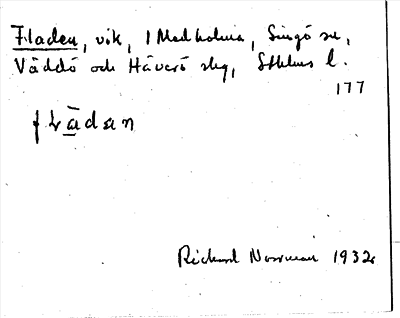 Fladen, vik, 1 Medholma, Singö sn,
Väddö och Häverö slg, Sthlms l.
177
Richard Norrman 1932